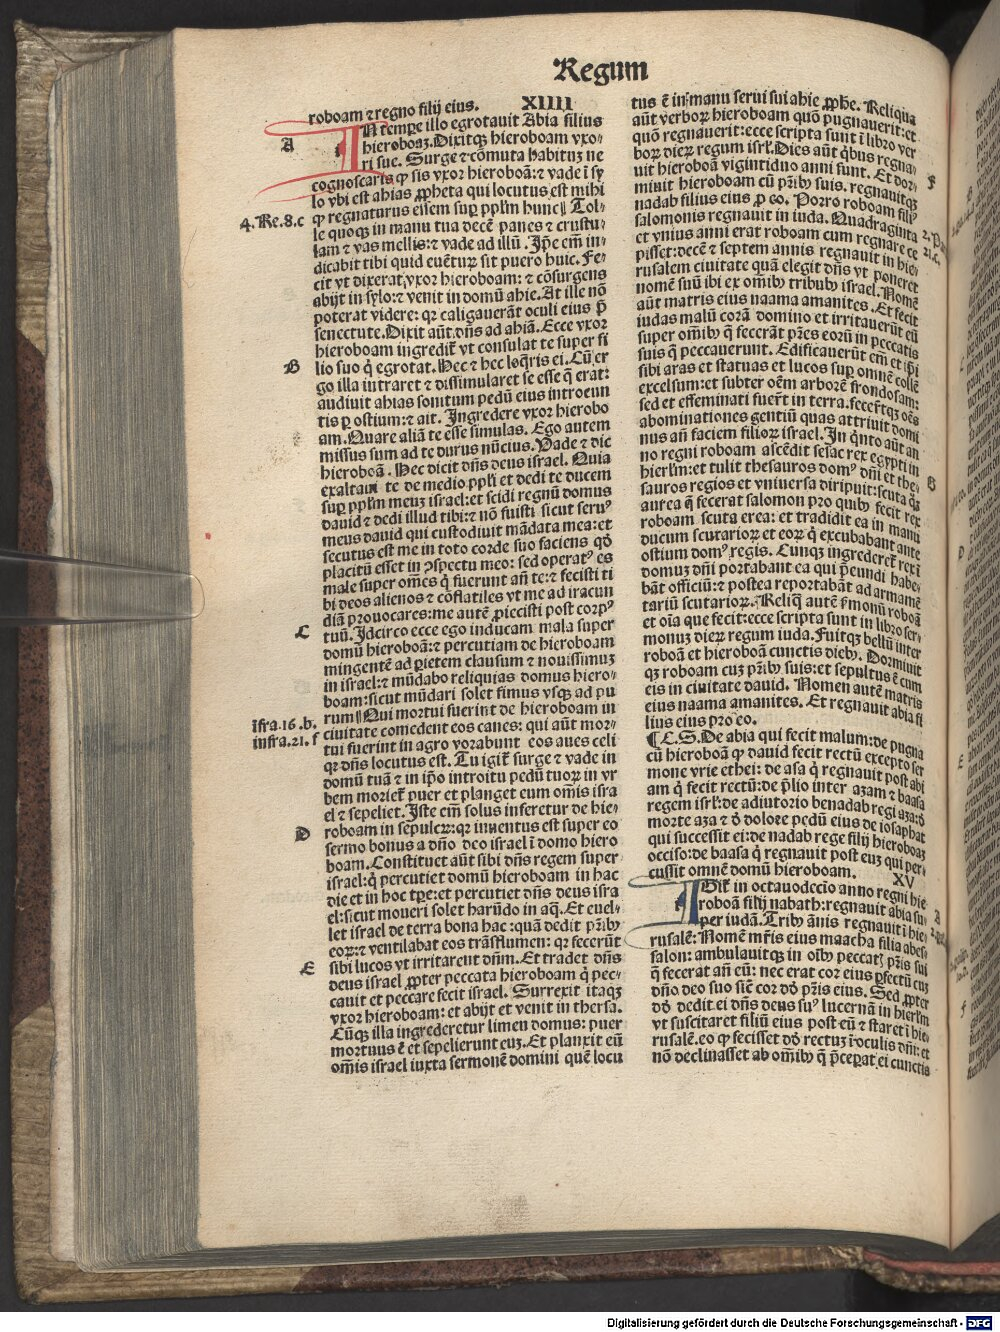 Regum
roboam ⁊ regno filij eius. XIIII
A
IN tempe illo egrotauit Abia filius
hieroboaꝫ. Dixitqꝫ hieroboam vxo⸗
ri sue. Surge ⁊ cōmuta habituꝫ ne
cognoscaris ꝙ sis vxor hieroboā: ⁊ vade ī sy
lo vbi est ahias ꝓpheta qui locutus est mihi
4. Re. 8. c
ꝙ regnaturus essem suꝑ pplm hunc‖ Tol⸗
le quoqꝫ in manu tua decē panes ⁊ crustu⸗
lam ⁊ vas mellis: ⁊ vade ad illū. Ipse em̄ in⸗
dicabit tibi quid euētuꝝ sit puero huic. Fe⸗
cit vt dixerat vxor hieroboam: ⁊ cōsurgens
abijt in sylo: ⁊ venit in domū ahie. At ille nō
poterat videre: qꝛ caligauerāt oculi eius p̄
senectute. Dixit aūt dn̄s ad ahiā. Ecce vxor
hieroboam ingredit̄ vt consulat te super fi
B
lio suo q̄ egrotat. Hec ⁊ hec loq̄ris ei. Cū er
go illa intraret ⁊ dissimularet se esse q̄ erat:
audiuit ahias sonitum pedū eius introeun
tis ꝑ ostium: ⁊ ait. Ingredere vxor hierobo
am. Quare aliā te esse simulas. Ego autem
missus sum ad te durus nūcius. Vade ⁊ dic
hieroboā. Hec dicit dn̄s deus israel. Quia
exaltaui te de medio ppli et dedi te ducem
suꝑ pplm meuꝫ israel: et scidi regnū domus
dauid ⁊ dedi illud tibi: ⁊ nō fuisti sicut seruꝰ
meus dauid qui custodiuit mādata mea: et
secutus est me in toto corde suo faciens qd̄
placitū esset in ꝯspectu meo: sed operatꝰ es
male super om̄es q̄ fuerunt an̄ te: ⁊ fecisti ti
bi deos alienos ⁊ cōflatiles vt me ad iracun
diā prouocares: me autē ꝓiecisti post corpꝰ
C
tuū. Idcirco ecce ego inducam mala super
domū hieroboā: ⁊ percutiam de hieroboam
mingentē ad ꝑietem clausum ⁊ nouissimuꝫ
in israel: ⁊ mūdabo reliquias domus hiero⸗
boam: sicut mūdari solet fimus vsqꝫ ad pu
īfra. 16. b.
rum‖ Qui mortui fuerint de hieroboam in
infra. 21. f
ciuitate comedent eos canes: qui aūt mor⸗
tui fuerint in agro vorabunt eos aues celi
qꝛ dn̄s locutus est. Tu igit̄ surge ⁊ vade in
domū tuā ⁊ in ip̄o introitu pedū tuoꝝ in vr
bem moriet̄ puer et planget eum om̄is isra
el ⁊ sepeliet. Iste em̄ solus inferetur de hie⸗
D
roboam in sepulcꝝ: qꝛ inuentus est super eo
sermo bonus a dn̄o deo israel ī domo hiero
boam. Constituet aūt sibi dn̄s regem super
israel: q̄ percutiet domū hieroboam in hac
die et in hoc tp̄e: et percutiet dn̄s deus isra
el: sicut moueri solet harūdo in aq̄. Et euel⸗
let israel de terra bona hac: quā dedit pr̄ibꝰ
eoꝝ: ⁊ ventilabat eos trāsflumen: qꝛ fecerūt
E
sibi lucos vt irritarent dn̄m. Et tradet dn̄s
deus israel ꝓpter peccata hieroboam q̄ pec⸗
cauit et peccare fecit israel. Surrexit itaqꝫ
vxor hieroboam: et abijt et venit in thersa.
Cūqꝫ illa ingrederetur limen domus: puer
mortuus ē et sepelierunt euꝫ. Et planxit eū
om̄is israel iuxta sermonē domini quē locu
tus ē in manu serui sui ahie ꝓphe. Reliqua
aūt verboꝝ hieroboam quō pugnauerit: et
quō regnauerit: ecce scripta sunt ī libro ver
boꝝ dierꝝ regum isrl̄. Dies aūt qͥbus regna⸗
uit hieroboā vigintiduo anni sunt. Et dor⸗
F
miuit hieroboam cū pr̄ibꝰ suis. regnauitqꝫ
nadab filius eius ꝓ eo. Porro roboam filiꝰ
salomonis regnauit in iuda. Quadraginta
et vnius anni erat roboam cum regnare ce
pisset: decē ⁊ septem annis regnauit in hie⸗
rusalem ciuitate quā elegit dn̄s vt poneret
nomē suū ibi ex om̄ibꝰ tribubꝰ israel. Nomē
aūt matris eius naama amanites. Et fecit
iudas malū corā domino et irritauerūt eū
super om̄ibꝰ q̄ fecerāt pr̄es eoꝝ in peccatis
suis q̄ peccauerunt. Edificauerūt em̄ et ip̄i
sibi aras et statuas et lucos suꝑ omnē collē
excelsum: et subter oēm arborē frondosam:
sed et effeminati fuert̄ in terra. fecert̄qꝫ oēs
abominationes gentiū quas attriuit domi
nus an̄ faciem filioꝝ israel. In qͥnto aūt an
no regni roboam ascēdit sesac rex egypti in
hierl̄m: et tulit thesauros domꝰ dn̄i et the⸗
G
sauros regios et vniuersa diripuit: scuta qͦꝫ
aurea q̄ fecerat salomon pro quibꝰ fecit rex
roboam scuta erea: et tradidit ea in manū
ducum scutarioꝝ et eoꝝ q̄ excubabant ante
ostium domꝰ regis. Cunqꝫ ingrederet̄ rex ī
domuꝫ dn̄i portabant ea qui p̄eundi habe⸗
bāt officiū: ⁊ postea reportabāt ad armamē
tariū scutarioꝝ. Reliq̄ autē ẜmonū roboā
et oīa que fecit: ecce scripta sunt in libro ser⸗
monuꝫ dierꝝ regum iuda. Fuitqꝫ bellū inter
roboā et hieroboā cunctis diebꝰ. Dormiuit
qꝫ roboam cuꝫ pr̄ibꝰ suis: et sepultus ē cum
eis in ciuitate dauid. Nomen autē matris
eius naama amanites. Et regnauit abia fi
lius eius pro eo.
¶ C. S. De abia qui fecit malum: de pugna
cū hieroboā ꝙ dauid fecit rectū excepto ser
mone vrie ethei: de asa q̄ regnauit post abi
am q̄ fecit rectū: de p̄lio inter azam ⁊ baasa
regem isrl̄: de adiutorio benadab regi aza: d̄
morte aza ⁊ d̄ dolore pedū eius de iosaphat
qui successit ei: de nadab rege filij hieroboaꝫ
occiso: de baasa q̄ regnauit post euꝫ qui per
cussit omnē domū hieroboam. XV
IGit̄ in octauodecīo anno regni hie
A
roboā filij nabath: regnauit abia su⸗
per iudā. Tribꝰ ānis regnauit ī hie⸗
rusalē: Nomē mr̄is eius maacha filia abes⸗
salon: ambulauitqꝫ in oībꝰ peccatꝭ pr̄is sui
q̄ fecerat an̄ eū: nec erat cor eius ꝑfectū cuꝫ
dn̄o deo suo sicut cor dd̄ pr̄is eius. Sed ꝓpter
dd̄ dedit ei dn̄s deus suꝰ lucernā in hierl̄m
vt suscitaret filiū eius post eū ⁊ staret ī hie⸗
rusalē. eo ꝙ fecisset dd̄ rectuꝫ ī oculis dn̄i: et
nō declinasset ab om̄ibꝰ q̄ p̄ceꝑat ei cunctis
Digitalisierung gefördert durch die Deutsche Forschungsgemeinschaft - DFG